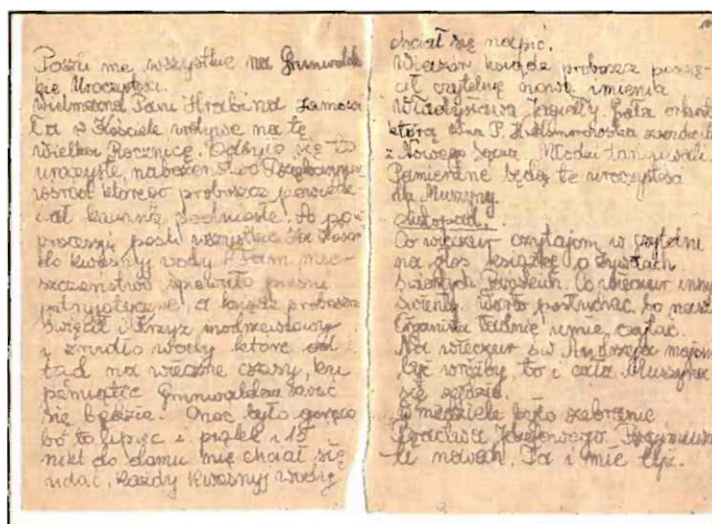 Poszli my wszystkie na Grunwaldz
kie Uroczystosci.
Wielmożna Pani Hrabina zamowi
ła w Kościele wotywe na tę
wielka Rocznicę. Odbyło się to
uroczyste nabożenstwo
wsrod ktorego proboszcz powiedz
iał kazanie podniosłe. A po
procesyji posli wszystkie za
do kwasnyj wody i tam mie-
szczenstwo spiewało piesni
patryjotyczne, a ksiądz proboszcz
święcił i krzyż modrzewiowy
i zrudło wody ktore od
tąd na wieczne czasy, ku
pamiątce Grunwaldem zwać
się będzie. Choc było gorąco
bo to lipiec i piątek i 15
nikt do domu nie chciał się
udać, każdy kwasnyj wody
chciał się napić.
Wieczór ksiądz proboszcz poswię-
cił czytelnię nowę imienia
Władysława Jagiełły. Grała orkiestra
którą
z Nowego Sącza. Młodzi tanguwali.
Pamientne będą te uroczystosci
dla Muszyny.
Listopad.
Co wieczur czytajom w czytelni
na głos książkę o żywotach
Swientych Panskich. Co wieczur inszy
swienty. Warto posłuchac, bo nasz
Organista ładnie umie czytac.
Na wieczur św Andrzeja majom
być wróżby, to i cała Muszyna
się zejdzie.
W niedziele było zebranie
Bractwa
li nowych. Ta i mie tyż.